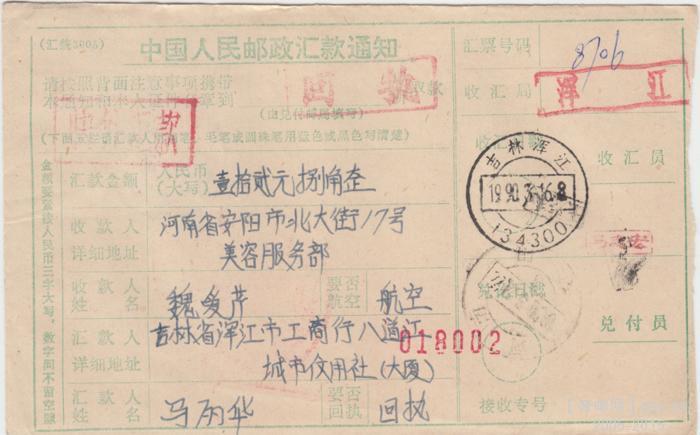 (汇统3005)
中国人民邮政汇款通知
汇票号码
8706
请按照背面注意事项携带
本通知和本人证件(印章)到
取款
(由兑付邮局填写)
收汇局
浑江
(下面五栏请汇款人用钢笔、毛笔或圆珠笔用蓝色或黑色写清楚)
收汇员
汇款金额
人民币
(大写)
壹拾贰元捌角整
吉林浑江
1990.3.16.8
134300
收款人
详细地址
河南省安阳市北大街17号
美容服务部
收款人
姓名
魏爱芹
要否
航空
航空
兑讫日戳
兑付员
汇款人
详细地址
吉林省浑江市工商行八道江
城市信用社(大厦)
018002
汇款人
姓名
马丽华
要否
回执
回执
接收专号
金额要签按人民币三字大写,数字间不留空隙